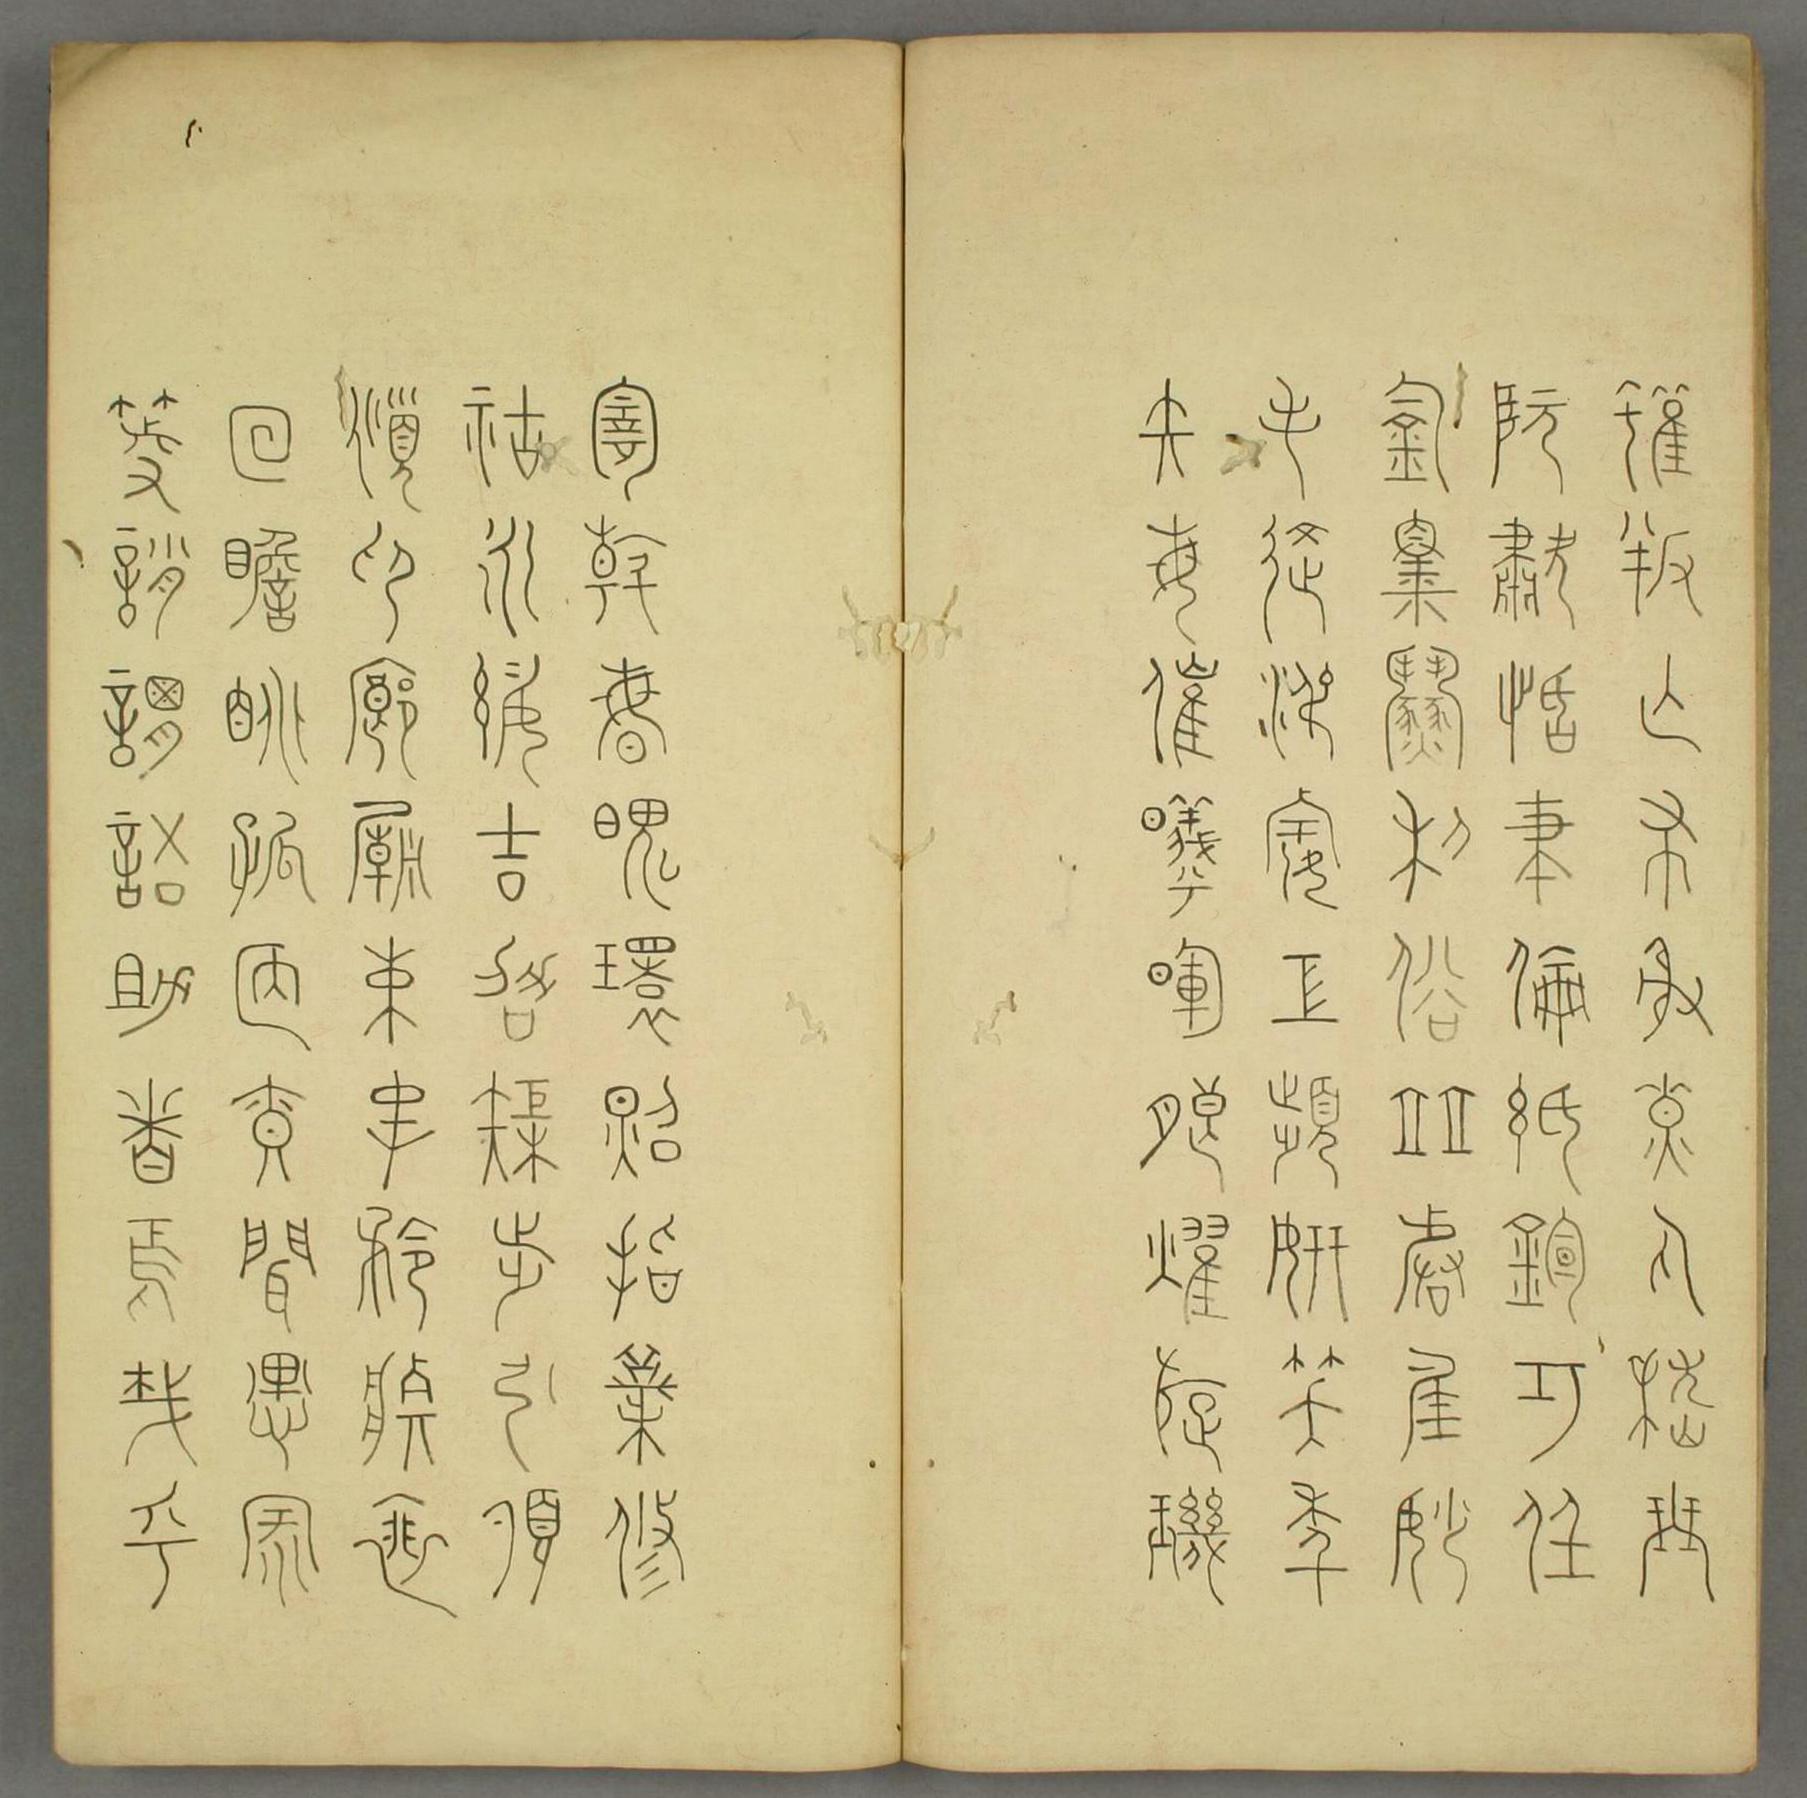 獲叛亡布射僚丸嵇琴
阮嘯恬筆倫紙鈞巧任
釣釋紛利俗並皆佳妙
毛施淑姿工顰妍笑年
矢每催曦暉朗燿旋璣
懸斡晦魄環照指薪修
祜永綏吉劭矩步引領
俯仰廊廟束帶矜莊徘
徊瞻眺孤陋寡聞愚蒙
等誚謂語助者焉哉乎